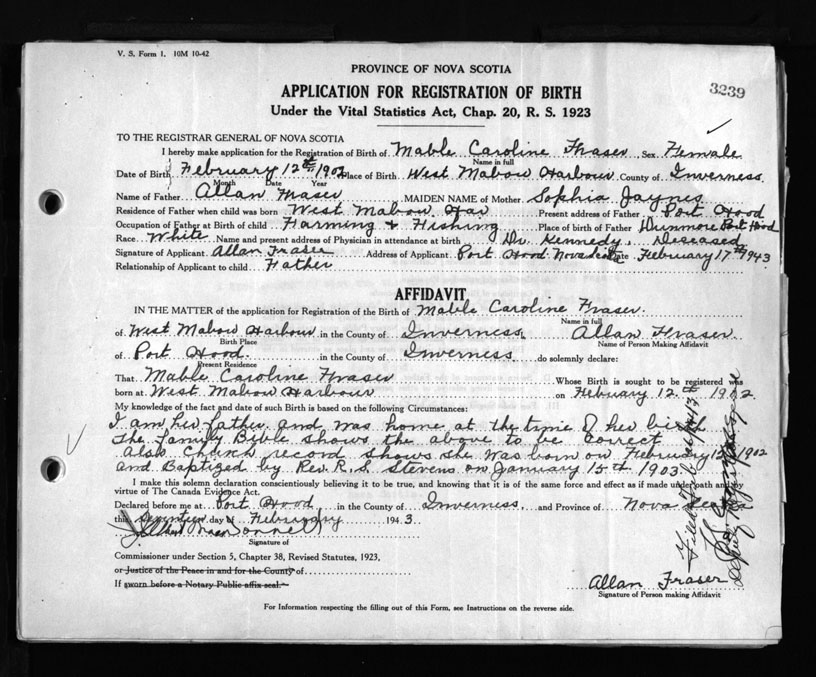 V. S. Form 1. 10M 10-42
PROVINCE OF NOVA SCOTIA
3239
APPLICATION FOR REGISTRATION OF BIRTH
Under the Vital Statistics Act, Chap. 20, R. S. 1923
TO THE REGISTRAR GENERAL OF NOVA SCOTIA
I hereby make application for the Registration of Birth of Mable Caroline Fraser, Sex Female
Name in full
Date of Birth February 12th 1902 Place of Birth West Mabou Harbour County of Inverness
Month Date Year
Name of Father Allan Fraser MAIDEN NAME of Mother Sophia Jaynes
Residence of Father when child was born West Mabow Har Present address of Father Port Hood
Occupation of Father at Birth of child Farming & Fishing Place of birth of Father Dunmore Port Hood
Race White Name and present address of Physician in attendance at birth Dr. Kennedy, Deceased
Signature of Applicant Allan Fraser Address of Applicant Port Hood Nova Scotia Date February 17th 1943
Relationship of Applicant to child Father
AFFIDAVIT
IN THE MATTER of the application for Registration of the Birth of Mable Caroline Fraser.
Name in full
of West Mabou Harbour in the County of Inverness, Allan Fraser.
Birth Place Name of Person Making Affidavit
of Port Hood. in the County of Inverness do solemnly declare:
Present Residence
That Mable Caroline Fraser Whose Birth is sought to be registered was
born at West Mabow Harbour on February 12th 1902.
My knowledge of the fact and date of such Birth is based on the following Circumstances:
I am her father and was home at the time of her birth
The family Bible shows the above to be correct
also Church record shows she was born on February 12 1902
and Baptized by Rev. R. S. Stevens on January 15th 1903.
I make this solemn declaration conscientiously believing it to be true, and knowing that it is of the same force and effect as if made under oath and by
virtue of The Canada Evidence Act.
Declared before me at Port Hood, in the County of Inverness, and Province of Nova Scotia
this seventeen day of February 1943.
Signature of
Commissioner under Section 5, Chapter 38, Revised Statutes, 1923,
or Justice of the Peace in and for the County of
If sworn before a Notary Public affix seal.
Allan Fraser
Signature of Person making Affidavit
For Information respecting the filling out of this Form, see Instructions on the reverse side.
Filed Feb